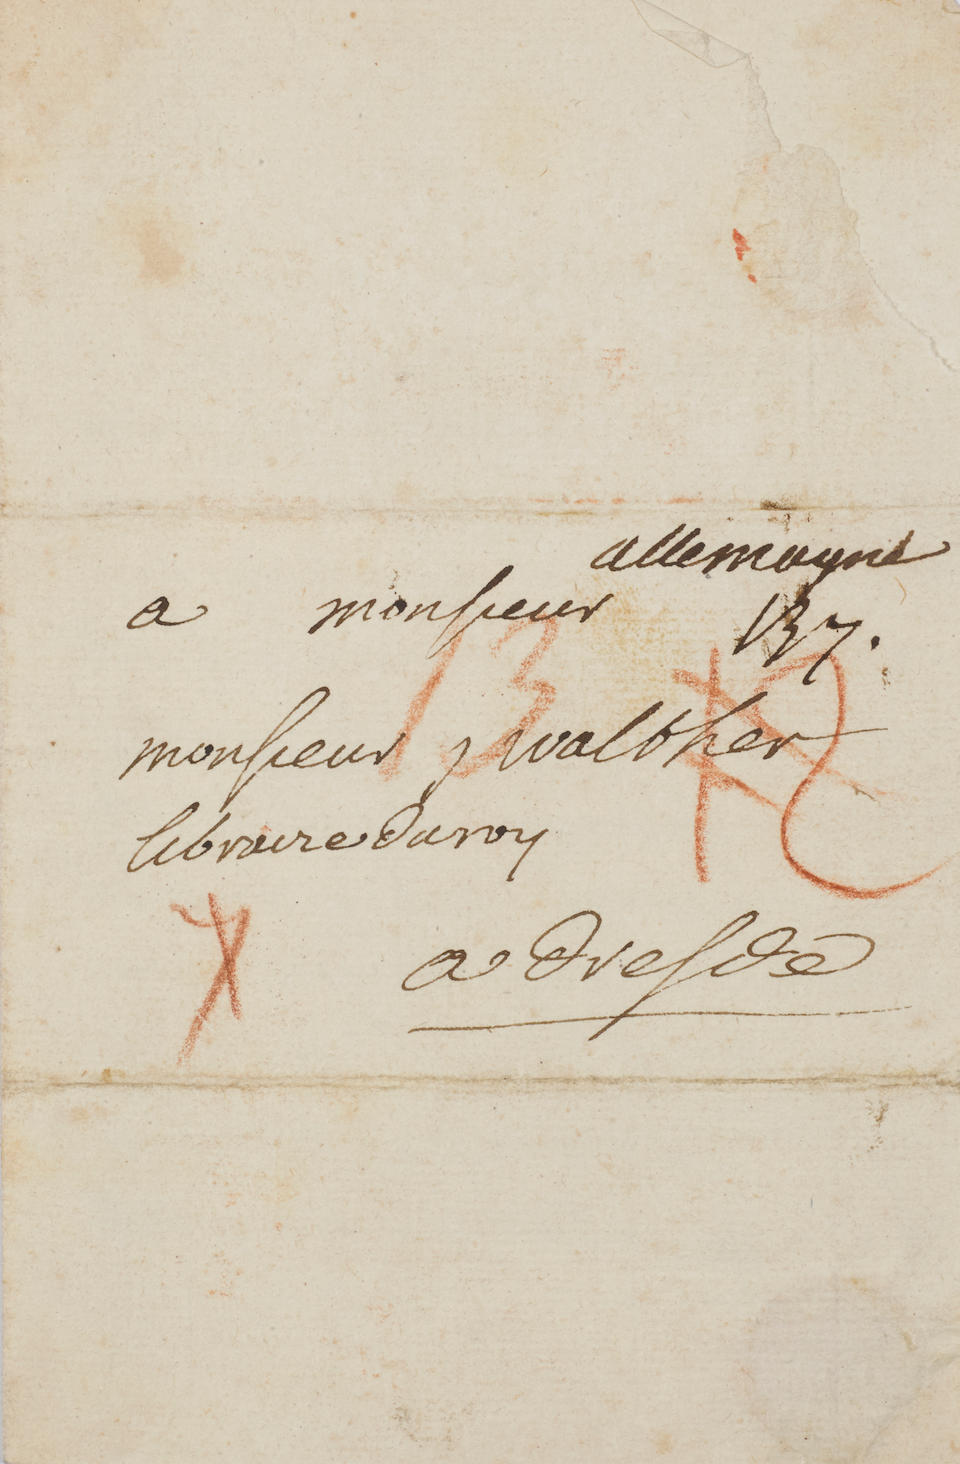 allemagne
a monsieur
137.
13
monsieur j walther
libraire du roy
a dresde